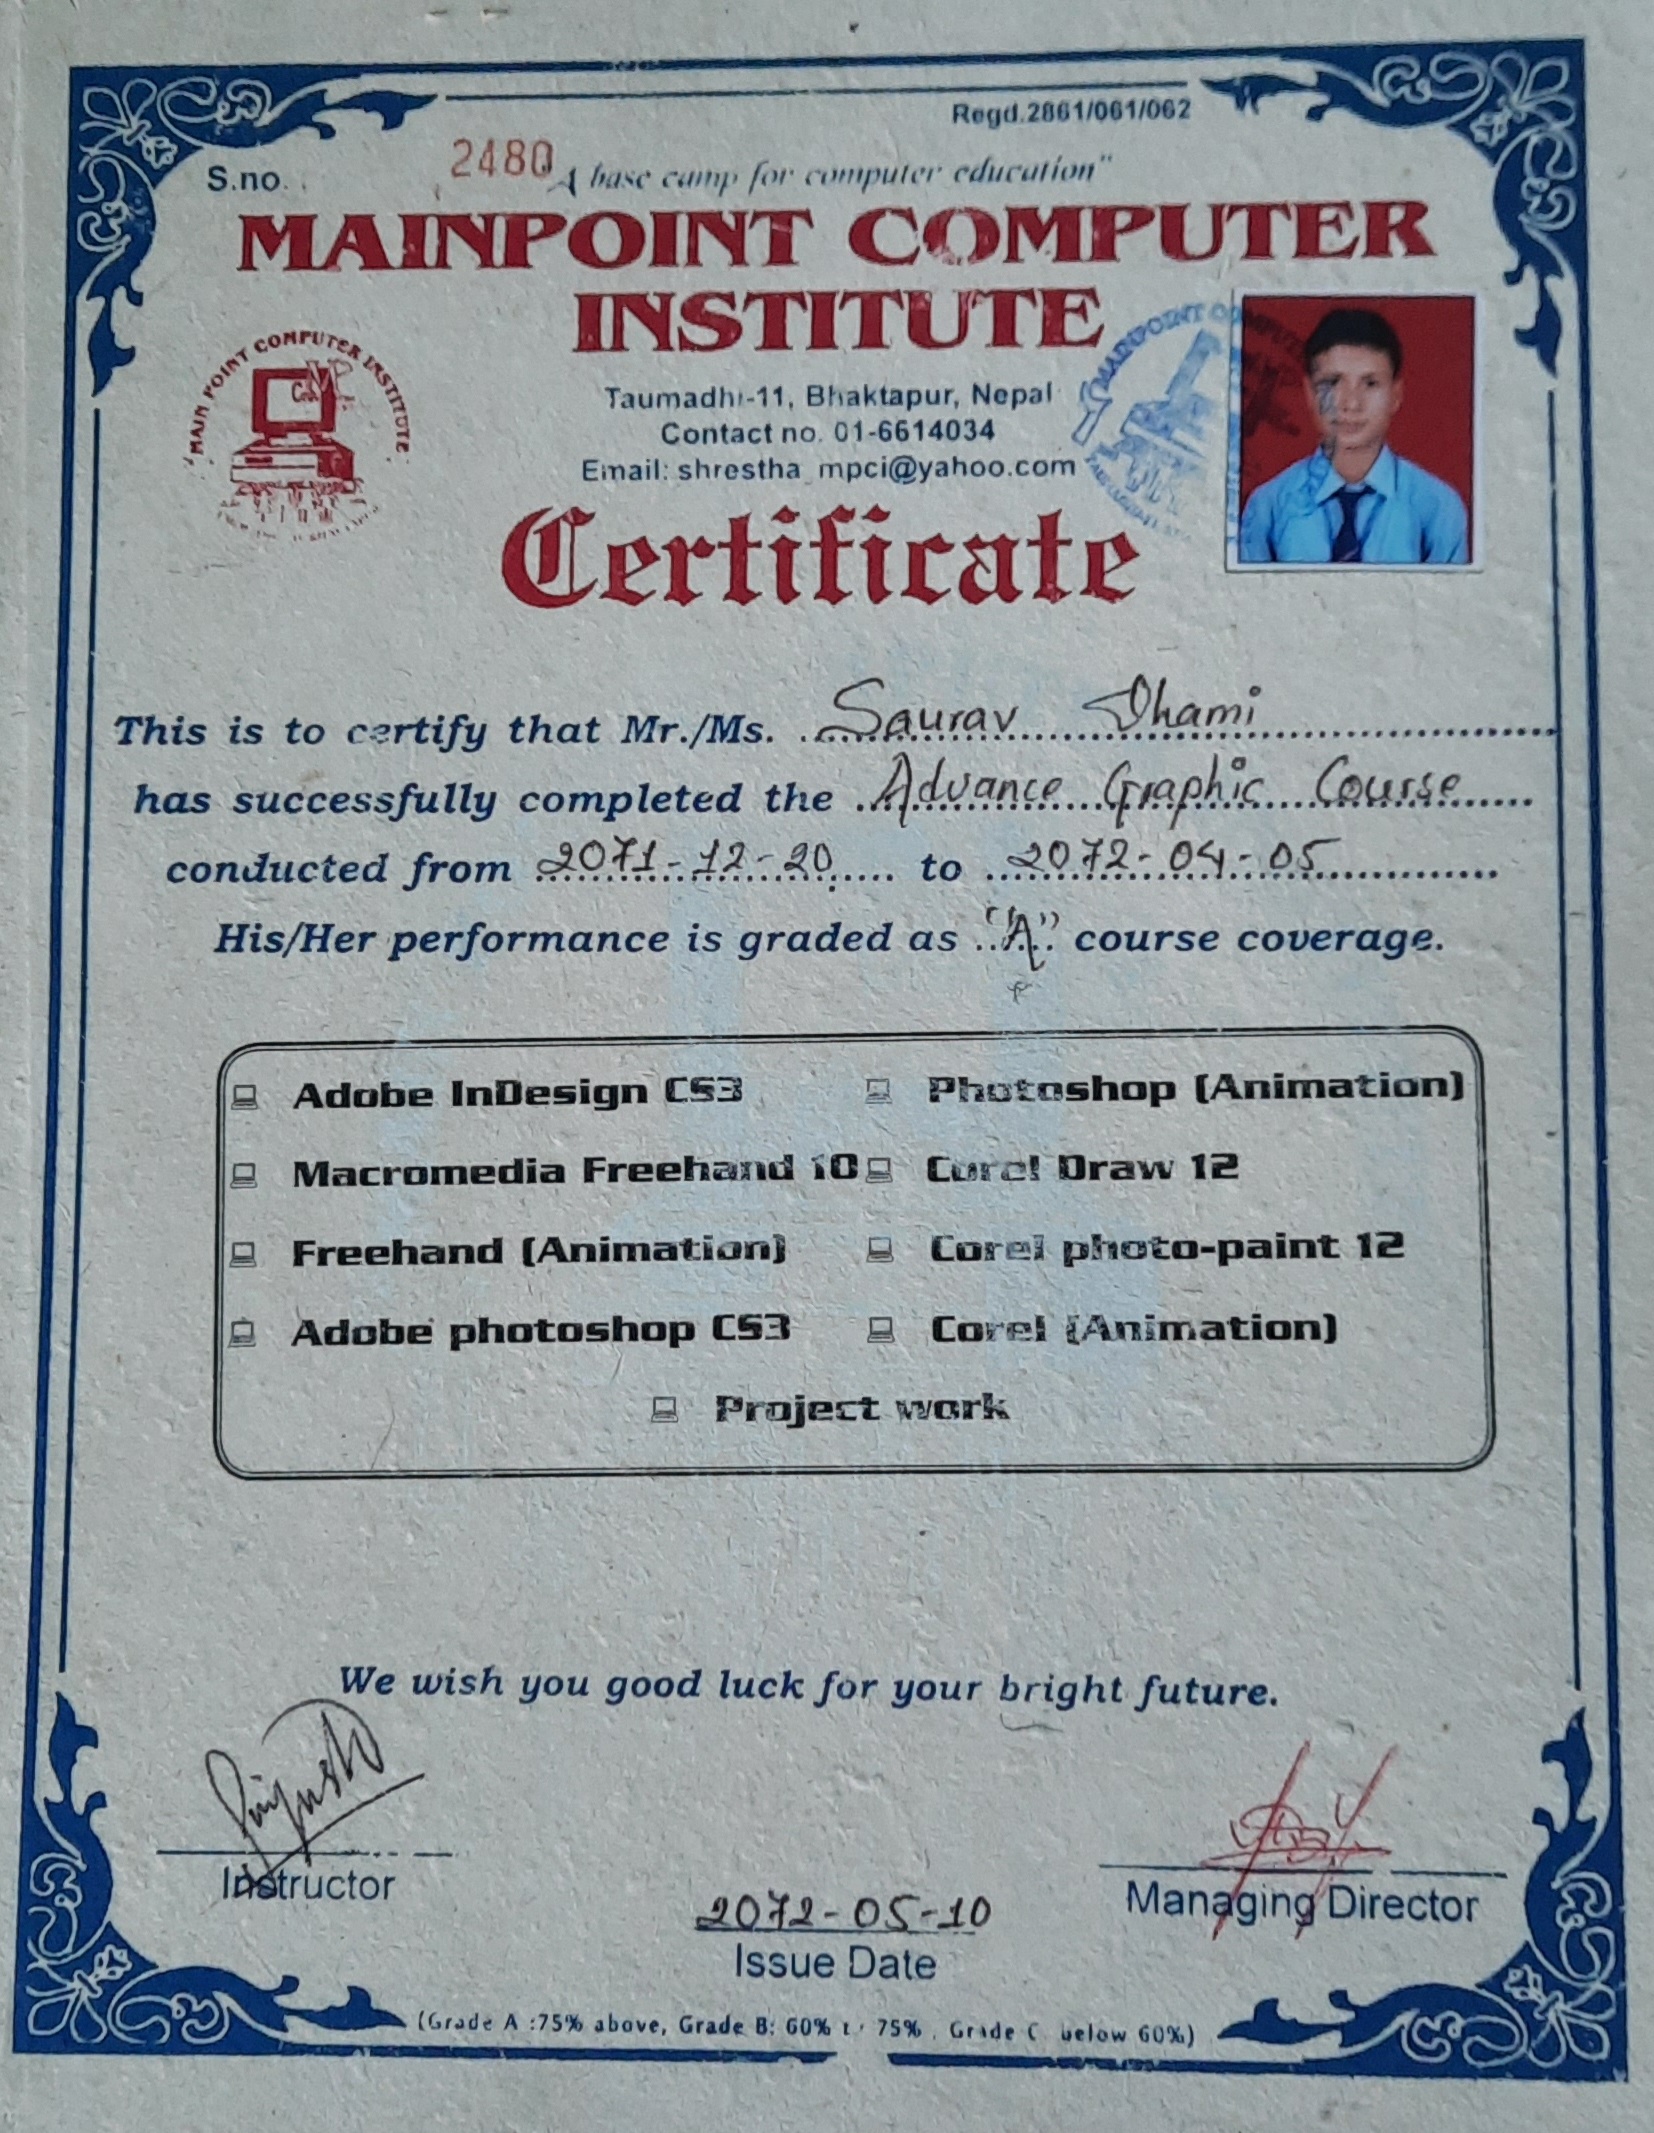 Regd.2861/061/062
S.no. 2480
A base camp for computer education"
MAINPOINT COMPUTER
INSTITUTE
"MAIN POINT COMPUTER INSTITUTE"
MAINPOINT
Taumadhi-11, Bhaktapur, Nepal
Contact no. 01-6614034
Email: shrestha_mpci@yahoo.com
Certificate
This is to certify that Mr./Ms. Saurav Dhami
has successfully completed the Advance Graphic Course
conducted from 2071-12-20 to 2072-04-05
His/Her performance is graded as "A" course coverage.
Adobe InDesign CS3 Photoshop (Animation)
Macromedia Freehand 10 Corel Draw 12
Freehand (Animation) Corel photo-paint 12
Adobe photoshop CS3 Corel (Animation)
Project work
We wish you good luck for your bright future.
Instructor
Managing Director
2072-05-10
Issue Date
(Grade A :75% above, Grade B: 60% 75%, Grade C below 60%)